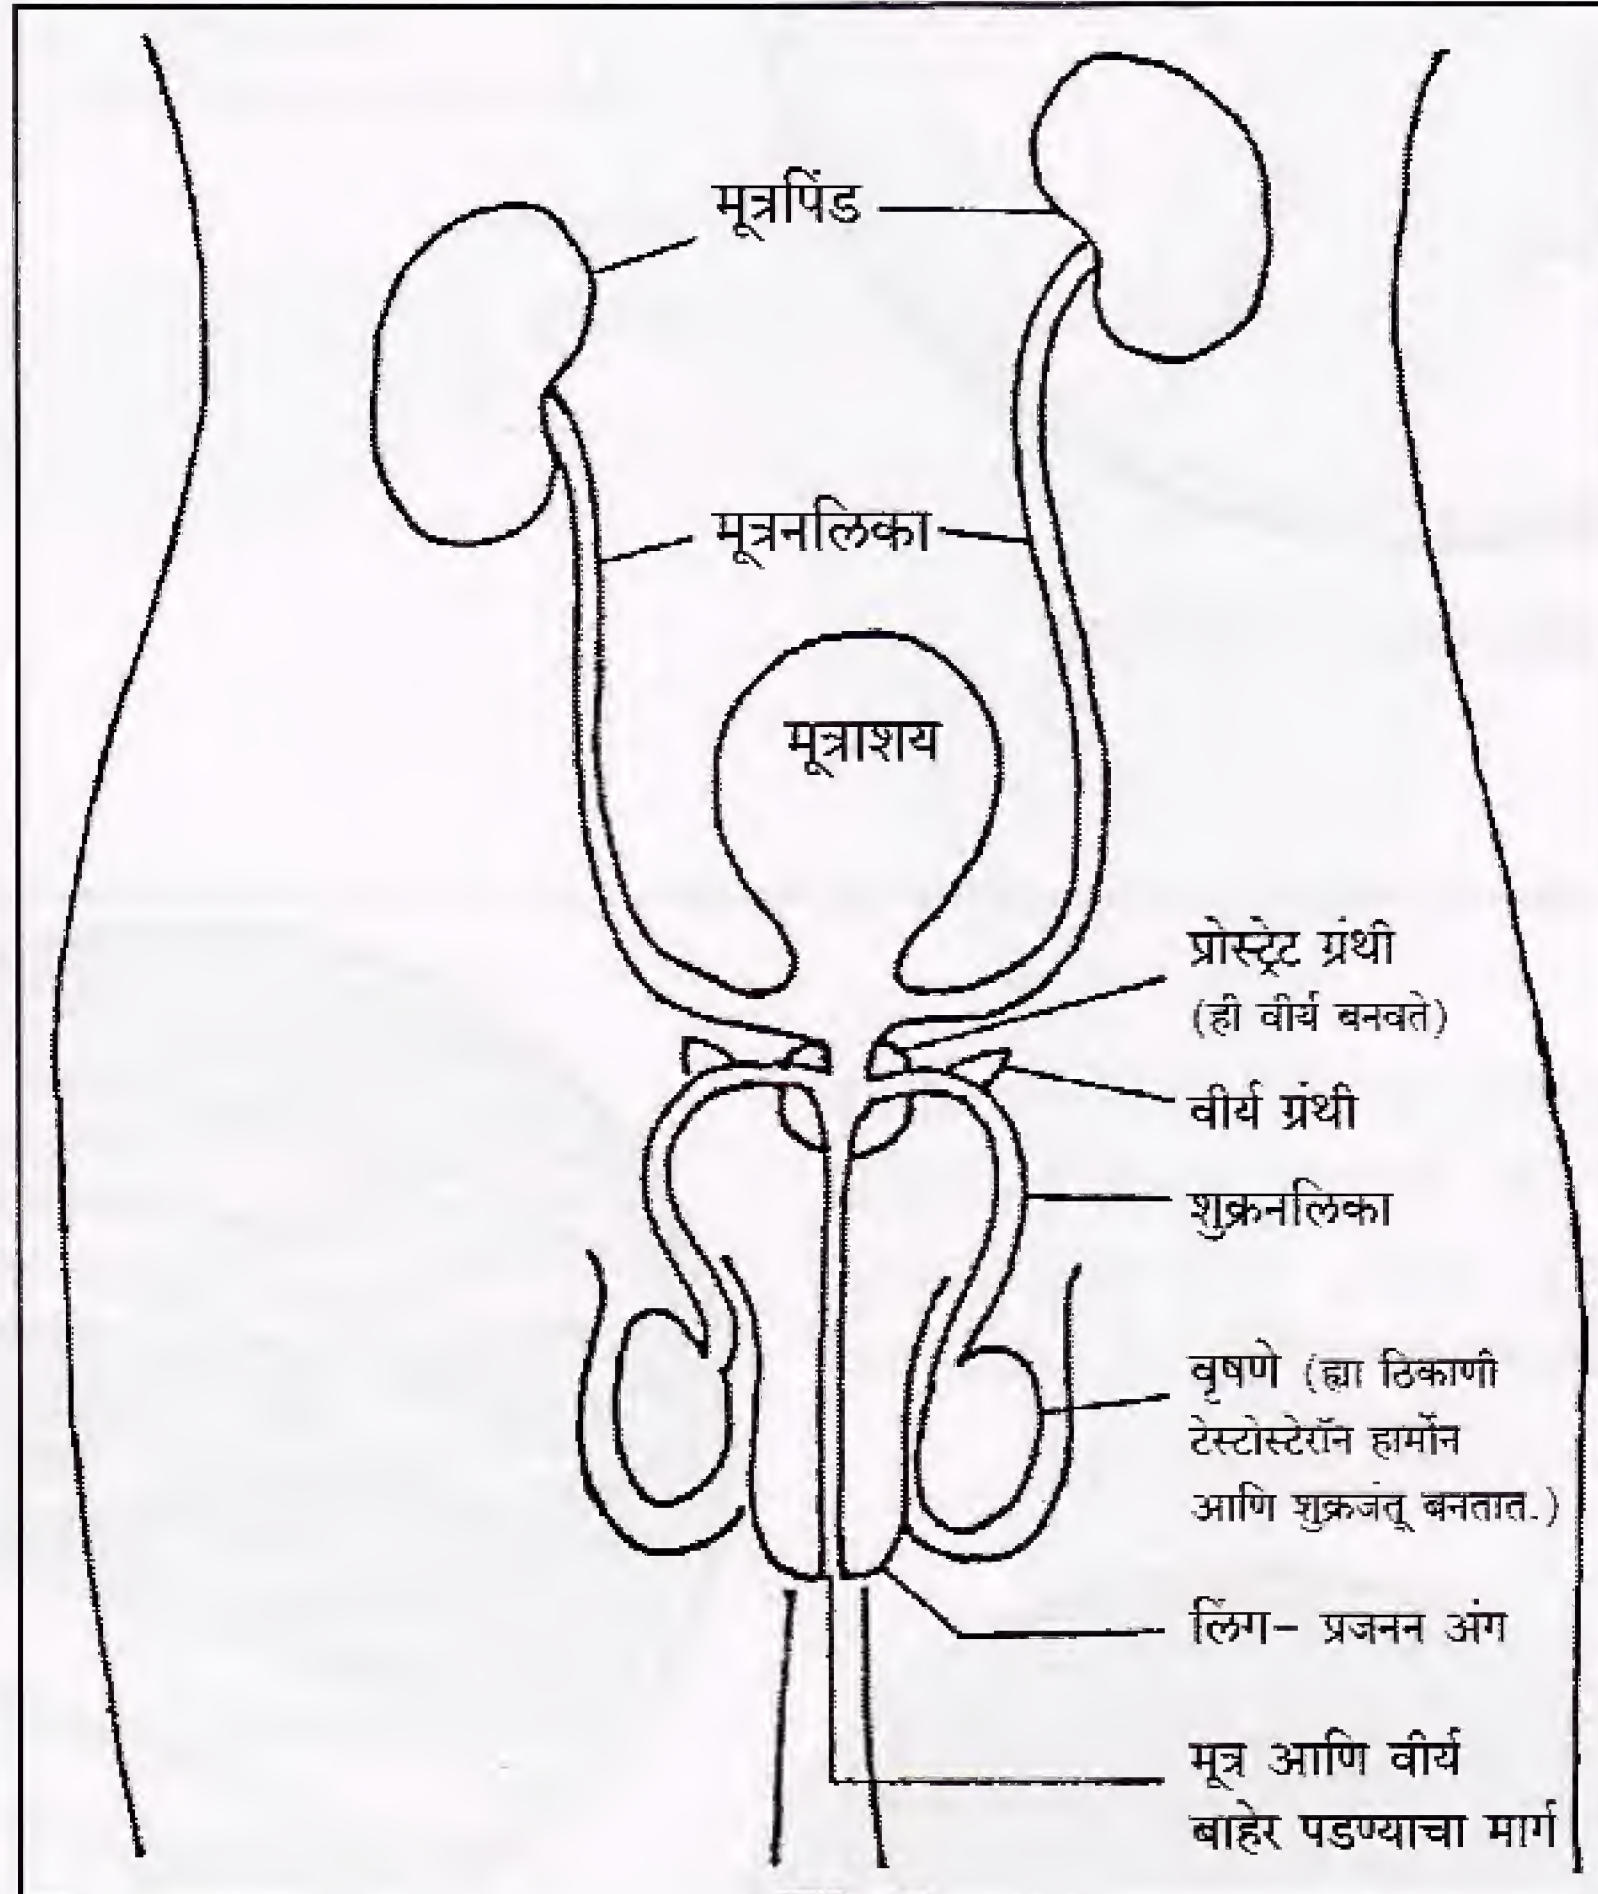 मूत्रपिंड
मूत्रनलिका
मूत्राशय
प्रोस्ट्रेट ग्रंथी
(ही वीर्य बनवते)
वीर्य ग्रंथी
शुक्रनलिका
वृषणे (ह्या ठिकाणी
टेस्टोस्टेरॉन हार्मोन
आणि शुक्रजंतू बनतात.)
लिंग- प्रजनन अंग
मूत्र आणि वीर्य
बाहेर पडण्याचा मार्ग